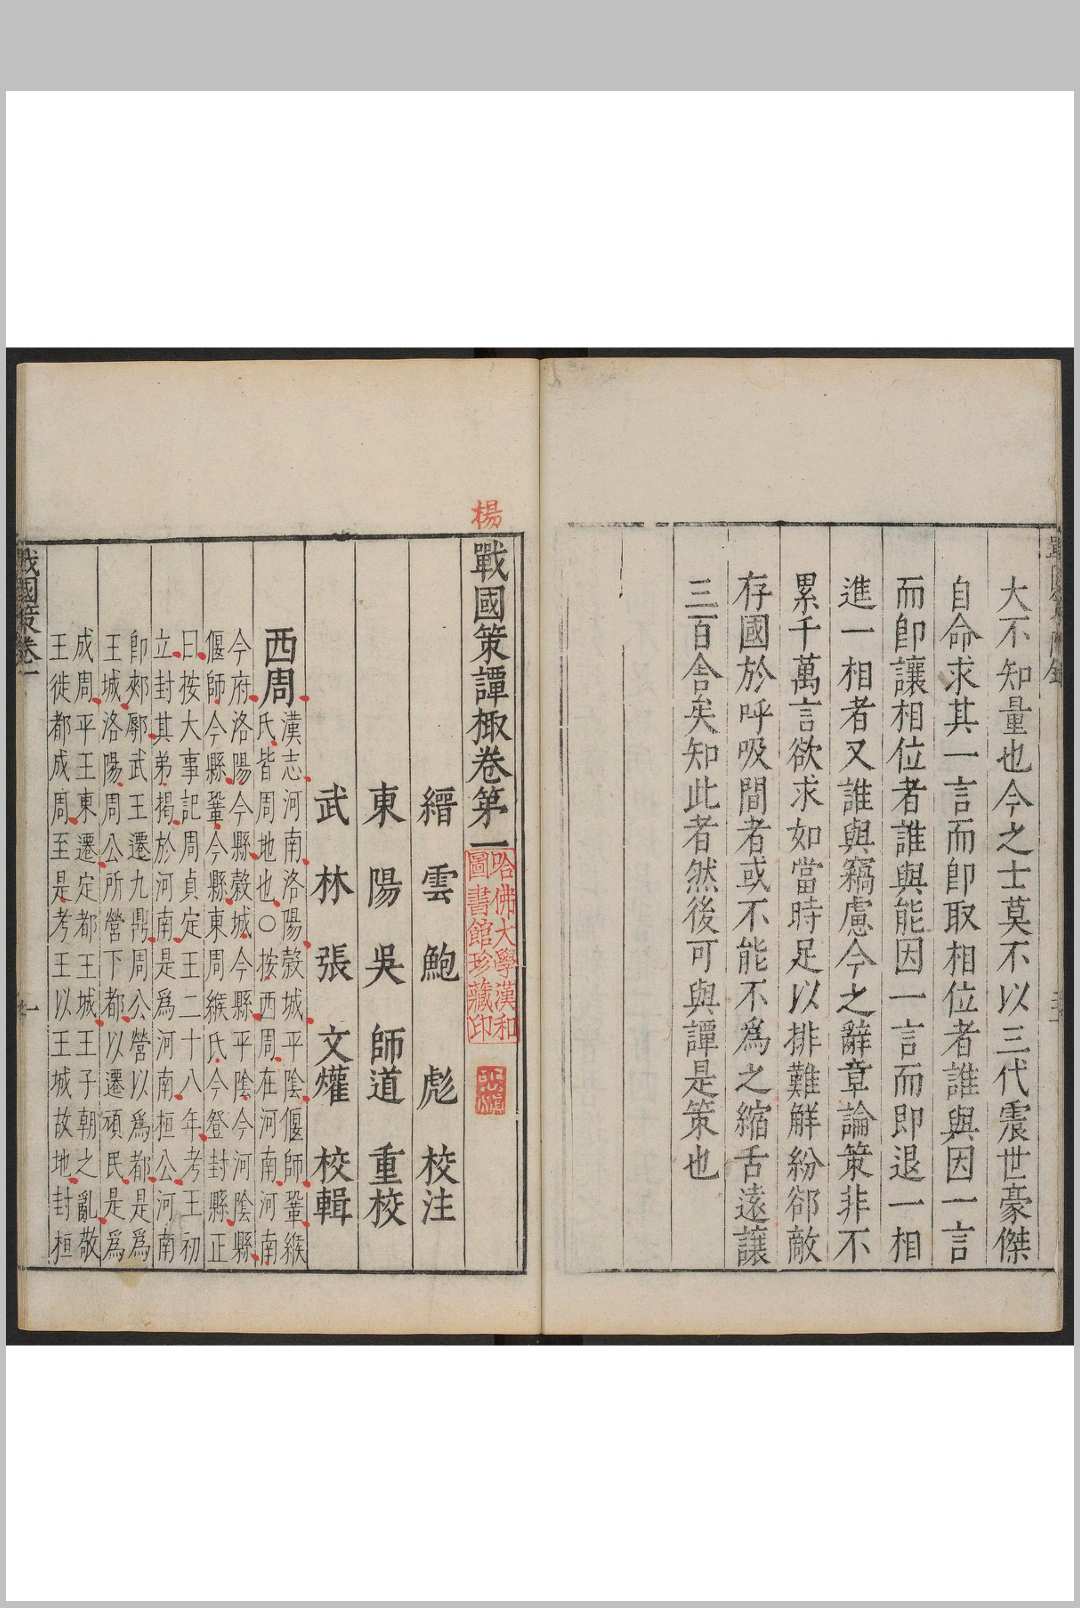 大不知量也今之士莫不以三代震世豪傑
自命求其一言而卽取相位者誰與因一言
而卽讓相位者誰與能因一言而即退一相
進一相者又誰與竊慮今之辭章論策非不
累千萬言欲求如當時足以排難解紛郤敵
存國於呼吸間者或不能不為之縮舌遠讓
三百舍矣知此者然後可與譚是策也
楊
戰國策譚棷卷第一
哈佛大學漢和
圖書館珍藏印
縉雲鮑彪校注
東陽吳師道重校
武林張文爟校輯
西周
漢志河南洛陽穀城平陰偃師鞏緱
氏皆周地也○按西周在河南河南
今府洛陽今縣穀城今縣平陰今河陰縣
偃師今縣鞏今縣東周緱氏今登封縣正
曰按大事記周貞定王二十八年考王初
立封其弟揭於河南是為河南桓公河南
卽郟鄏武王遷九鼎周公營以為都是為
王城洛陽周公所營下都以遷頑民是為
成周平王東遷定都王城王子朝之亂敬
王徙都成周至是考王以王城故地封桓
戰國策卷一
一